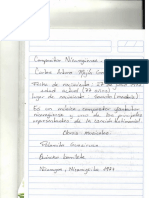 Compositor Nicaragüense
Carlos Arturo Mejía
Fecha de nacimiento: 27 de junio 1943
actual (77 años)
Lugar de nacimiento: Somoto (Madriz)
Es un músico, compositor, cantautor
nicaragüense y uno de los principales
representantes de la canción testimonial
Obras musicales
Quincho Barrilete
Nicaragua, Nicaragüita 1971